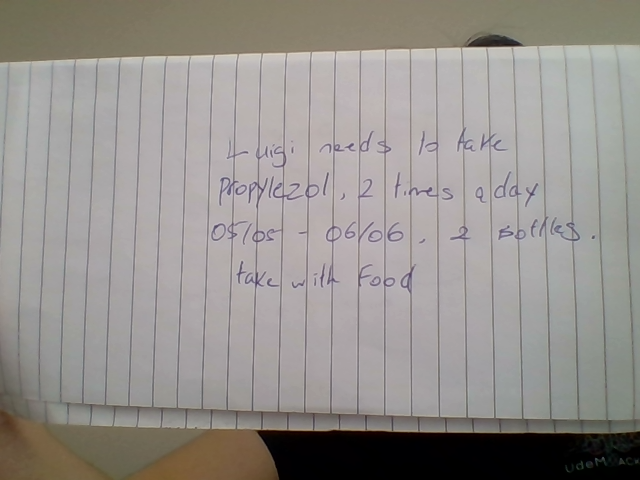 Luigi needs to take
propylezol, 2 times a day
05/05 - 06/06, 2 Bottles.
take with Food
UdeM